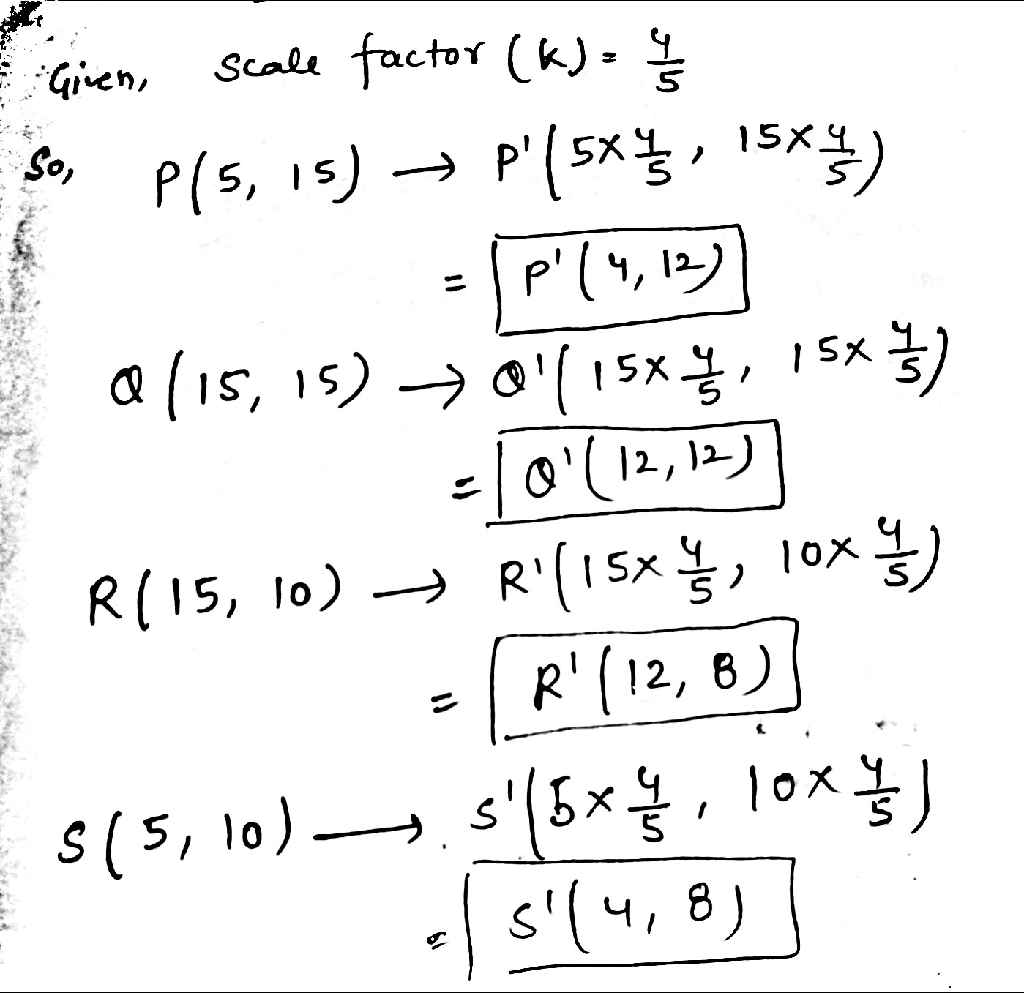 Given, scale factor (k) = 4/5
So, P(5, 15) → P'(5×4/5, 15×4/5)
= P'(4, 12)
Q(15, 15) → Q'(15×4/5, 15×4/5)
= Q'(12, 12)
R(15, 10) → R'(15×4/5, 10×4/5)
= R'(12, 8)
S(5, 10) → S'(5×4/5, 10×4/5)
= S'(4, 8)